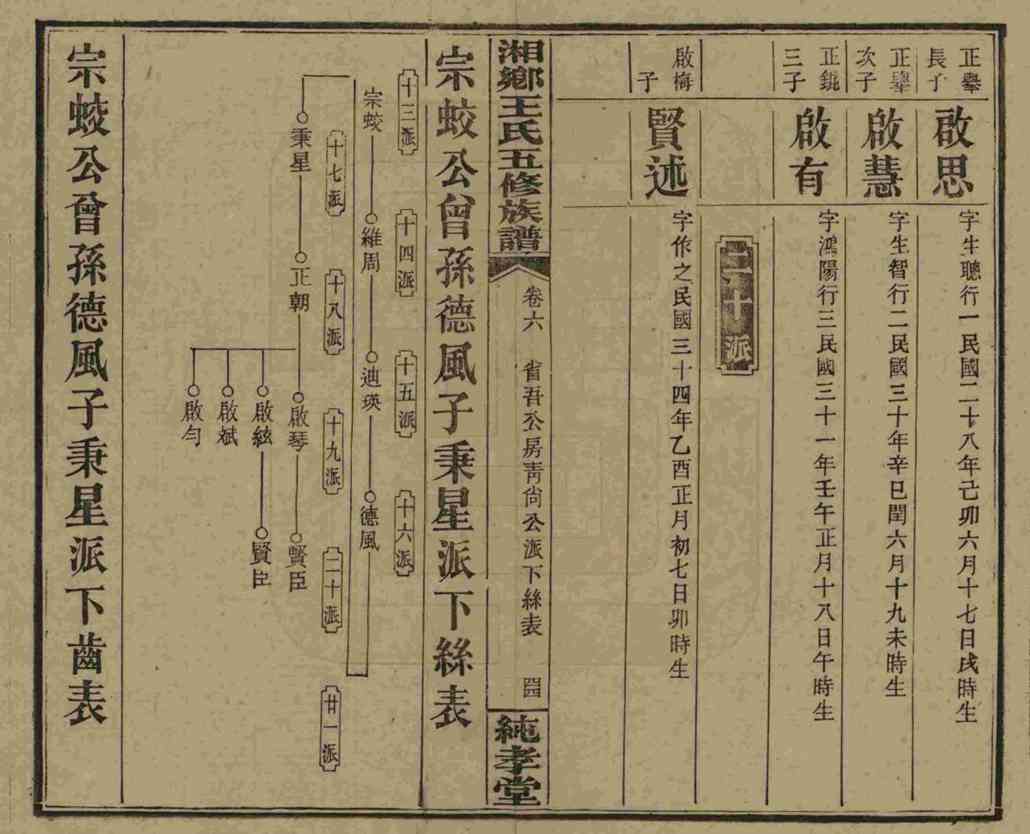 正舉長子
啟思
字生聰行一民國二十八年己卯六月十七日戌時生
正舉次子
啟慧
字生智行二民國三十年辛巳閏六月十九未時生
正銚三子
啟有
字鴻陽行三民國三十一年壬午正月十八日午時生
二十派
啟梅子
賢述
字作之民國三十四年乙酉正月初七日卯時生
湘鄉王氏五修族譜
卷六
省吾公房靑尙公派下絲表
純孝堂
宗蛟公曾孫德風子秉星派下絲表
十三派
十四派
十五派
十六派
宗蛟
維周
迪瑛
德風
十七派
十八派
十九派
二十派
廿一派
秉星
正朝
啟琴
賢臣
啟絃
賢臣
啟斌
啟勻
宗蛟公曾孫德風子秉星派下齒表